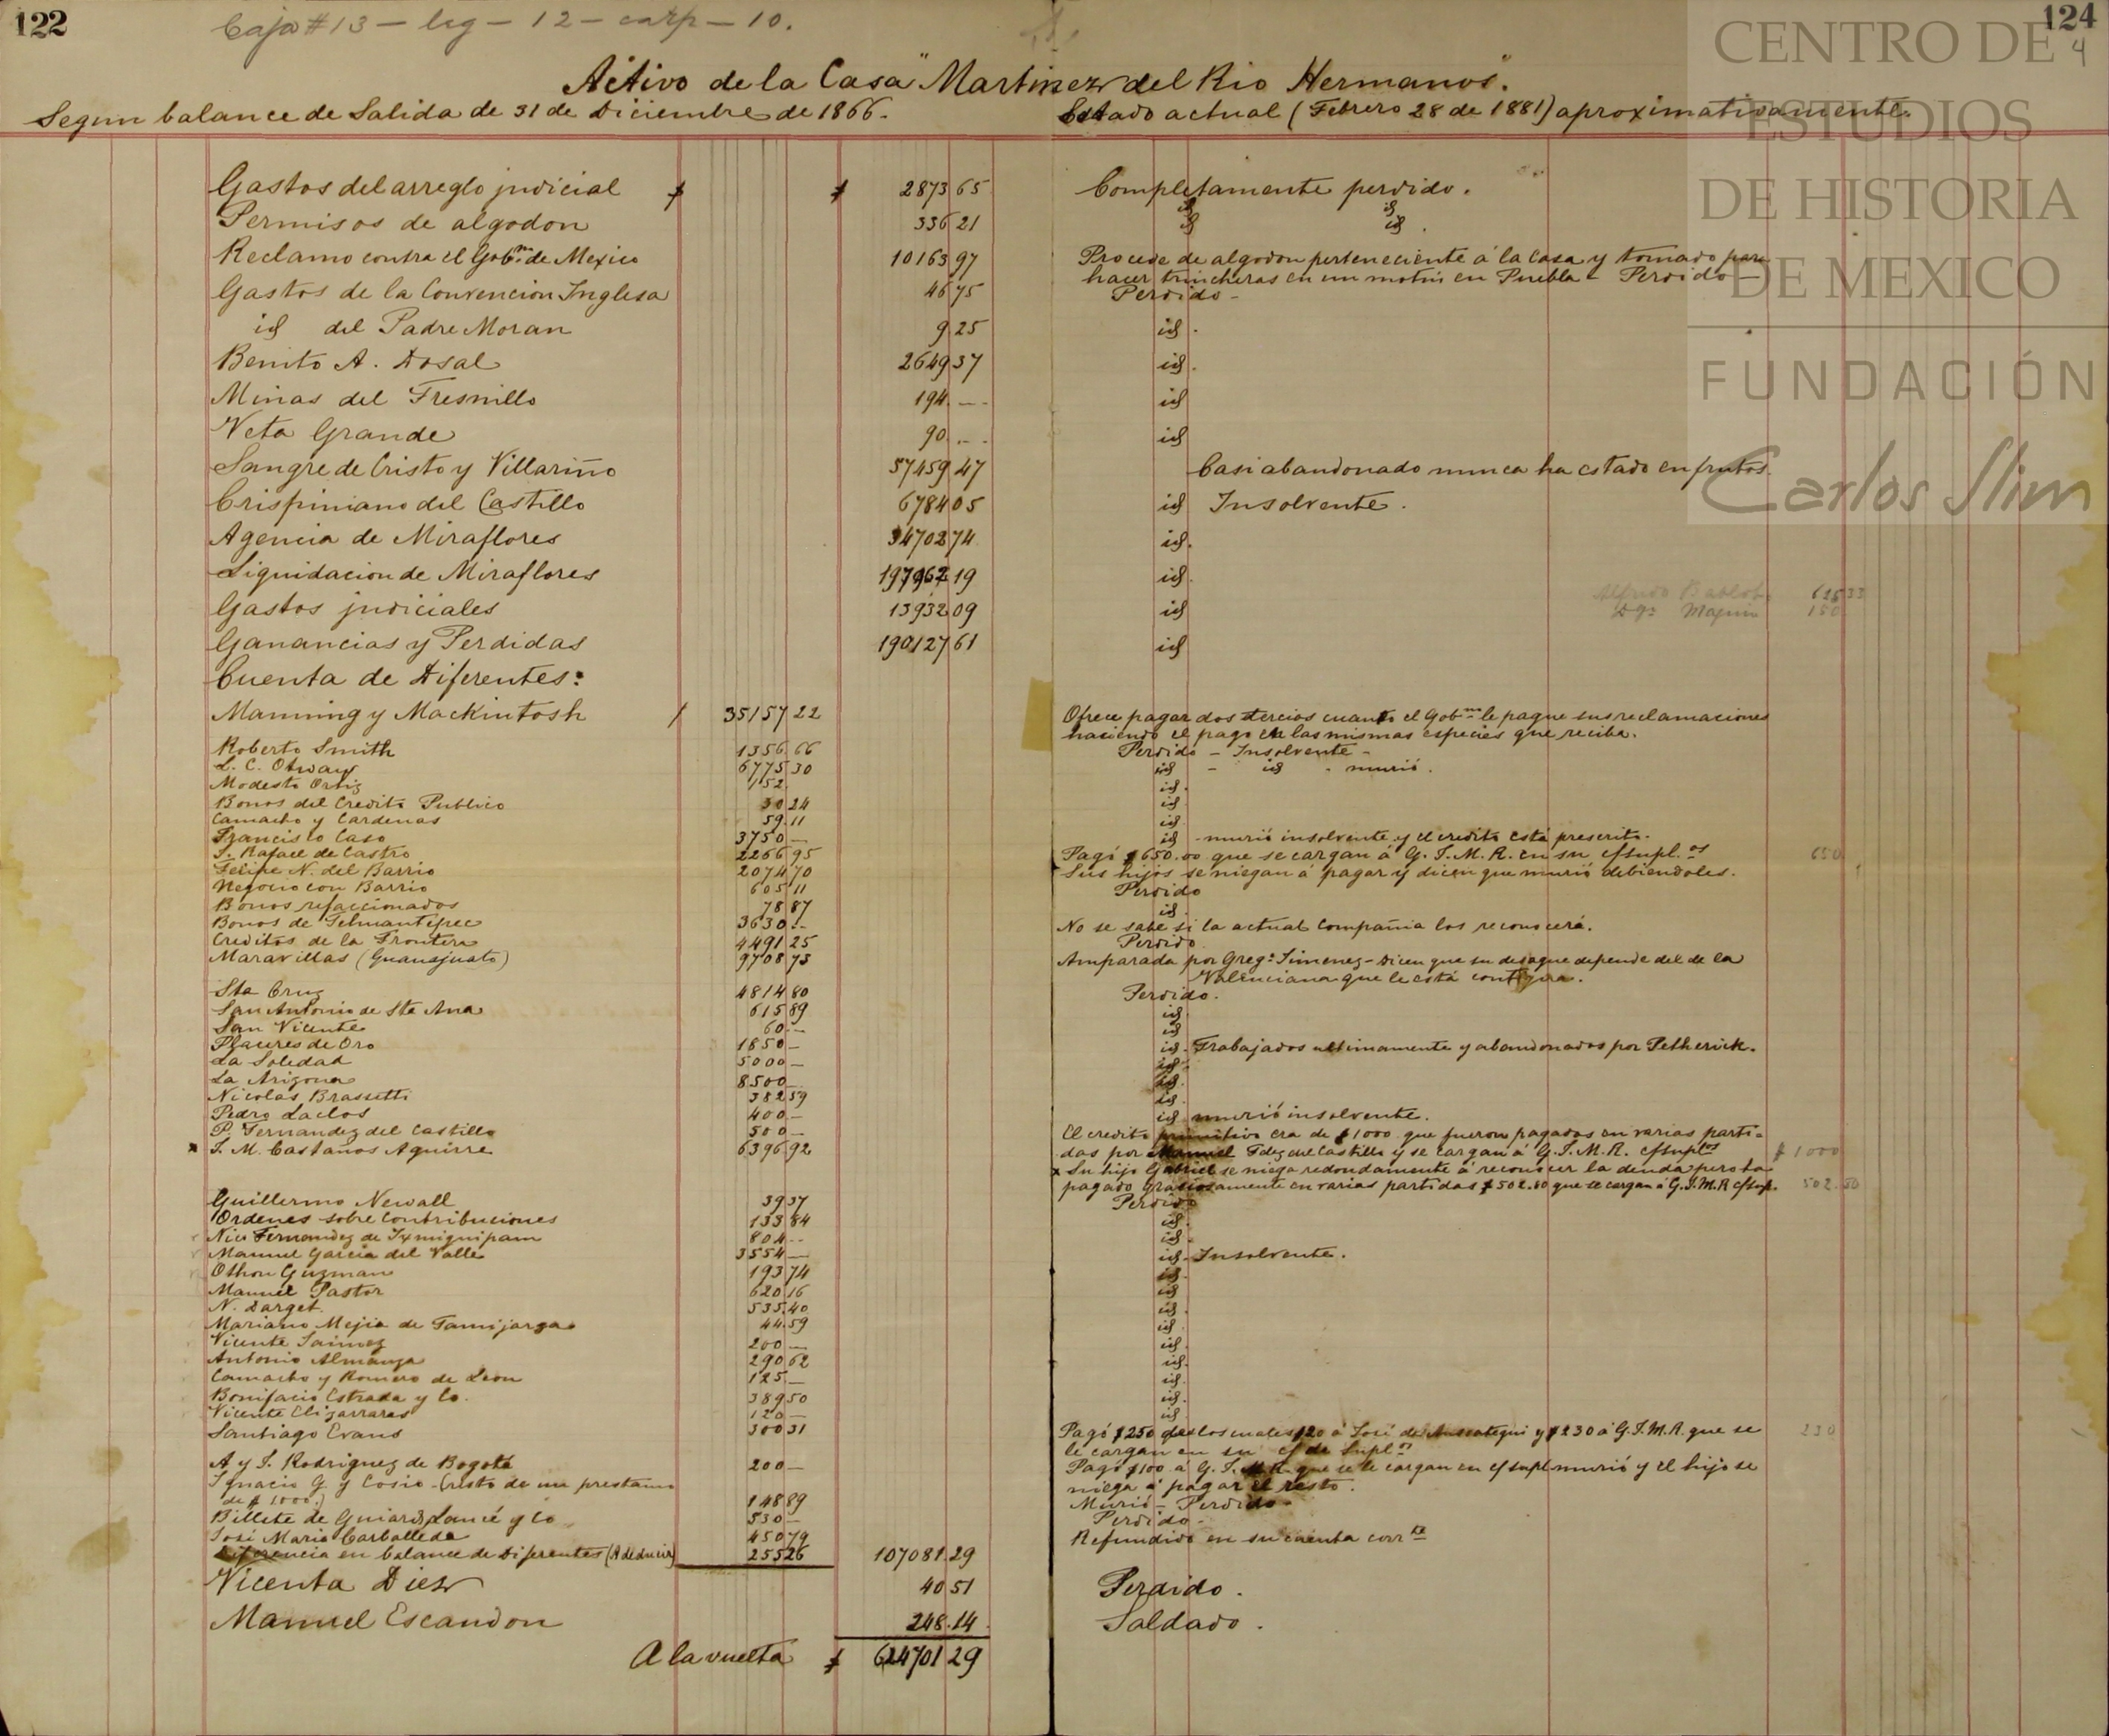 122
Caja #13 — leg — 12 — carp — 10.
124
4
CENTRO DE
ESTUDIOS
DE HISTORIA
DE MEXICO
FUNDACIÓN
Carlos Slim
Activo de la Casa "Martinez del Rio Hermanos".
Segun balance de Salida de 31 de Diciembre de 1866. Estado actual (Febrero 28 de 1881) aproximativamente.
Gastos del arreglo judicial $ $ 2873 65 Completamente perdido.
Permisos de algodon 336 21 id id.
Reclamo contra el Gob.no de Mexico 10163 97 Procede de algodon perteneciente á la Casa y tomado para
hacer trincheras en un motin en Puebla - Perdido
Gastos de la Convencion Inglesa 46 75 Perdido -
id del Padre Moran 9 25 id.
Benito A. Dosal 2649 37 id.
Minas del Fresnillo 194 -- id
Veta Grande 90 -- id
Sangre de Cristo y Villariño 57459 47 Casi abandonado nunca ha estado en frutos.
Crispiniano del Castillo 6784 05 id Insolvente.
Agencia de Miraflores 34702 74 id.
Liquidacion de Miraflores 197962 19 id.
Gastos judiciales 13932 09 id
Alfredo Bablot 625 33
150
Ganancias y Perdidas 190127 61 id
Cuenta de Diferentes:
Manning y Mackintosh / 35157 22 Ofrece pagar dos tercios cuando el Gob.no le pague sus reclamaciones
haciendo el pago en las mismas especies que reciba.
Roberto Smith 1356 66 Perdido - Insolvente -
L. C. Otway 6775 30 id - id - murió.
Modesto Ortiz 152 id.
Bonos del Credito Publico 30 24 id
Camacho y Cardenas 59 11 id
Francisco Caso 3750 — id - murió insolvente y el credito está prescrito.
J. Rafael de Castro 2266 95 Pagó $650.00 que se cargan á G. J. M. R. en su c/supl.os 650
Felipe N. del Barrio 2074 70 Sus hijos se niegan á pagar y dicen que murió debiendoles.
Negocio con Barrio 605 11 Perdido
Bonos refaccionados 78 87 id.
Bonos de Tehuantepec 3630 -- No se sabe si la actual Compañia los reconocerá.
Creditos de la Frontera 4491 25 Perdido
Maravillas (Guanajuato) 9708 73 Amparada por Greg.o Jimenez - Dicen que su desague depende del de la
Valenciana que le está contigua.
Sta Cruz 4814 80 Perdido.
San Antonio de Sta Ana 615 89 id
San Vicente 60 — id
Placeres de Oro 1850 — id. Trabajados ultimamente y abandonados por Petherick.
La Soledad 5000 — id
La Arizona 8500 — id.
Nicolas Brassetti 382 59 id.
Pedro Laclos 400 — id murió insolvente.
P. Fernandez del Castillo 500 — El credito primitivo era de $1000 que fueron pagados en varias parti-
das por Manuel Fdez del Castillo y se cargan á G. J. M. R. c/suplos $ 1000
x J. M. Castaños Aguirre 6396 92 x Su hijo Gabriel se niega redondamente á reconocer la deuda pero ha
pagado graciosamente en varias partidas $502.80 que se cargan á G. J. M. R c/sup. 502.80
Guillermo Newall 39 37 Perdido
Ordenes sobre Contribuciones 133 84 id.
Nic.s Fernandez de Ixmiquipam 804 -- id.
Manuel Garcia del Valle 3554 — id - Insolvente.
Othon Guzman 193 74 id.
Manuel Pastor 620 16 id
N. Darget 535 40 id.
Mariano Mejia de 44 59 id
Vicente 200 — id.
Antonio Almanza 290 62 id.
Camacho y Romero de Leon 125 — id.
Bonifacio Estrada y Co. 389 50 id.
Vicente Elizarraras 120 — id
Santiago Evans 300 31 Pagó $250 de los cuales $20 á José de y $230 á G. J. M. R. que se 230
le cargan en su c/ de Supl.os
A y J. Rodriguez de Bogotá 200 — Pagó $100 á G. J. M. R. que se le cargan en c/supl murió y el hijo se
niega á pagar el resto.
Ignacio G. y Cosio (resto de un prestamo
de $ 1000.) 148 89 Murió - Perdido -
Billete de Guiard Lancé y Co 530 — Perdido -
José Maria Carballeda 450 79 Refundido en su cuenta corr.te
Diferencia en balance de Diferentes (A deducir) 255 26 107081 29
Vicenta Diez 40 51 Perdido.
Manuel Escandon 248 14 Saldado.
A la vuelta $ 624701 29